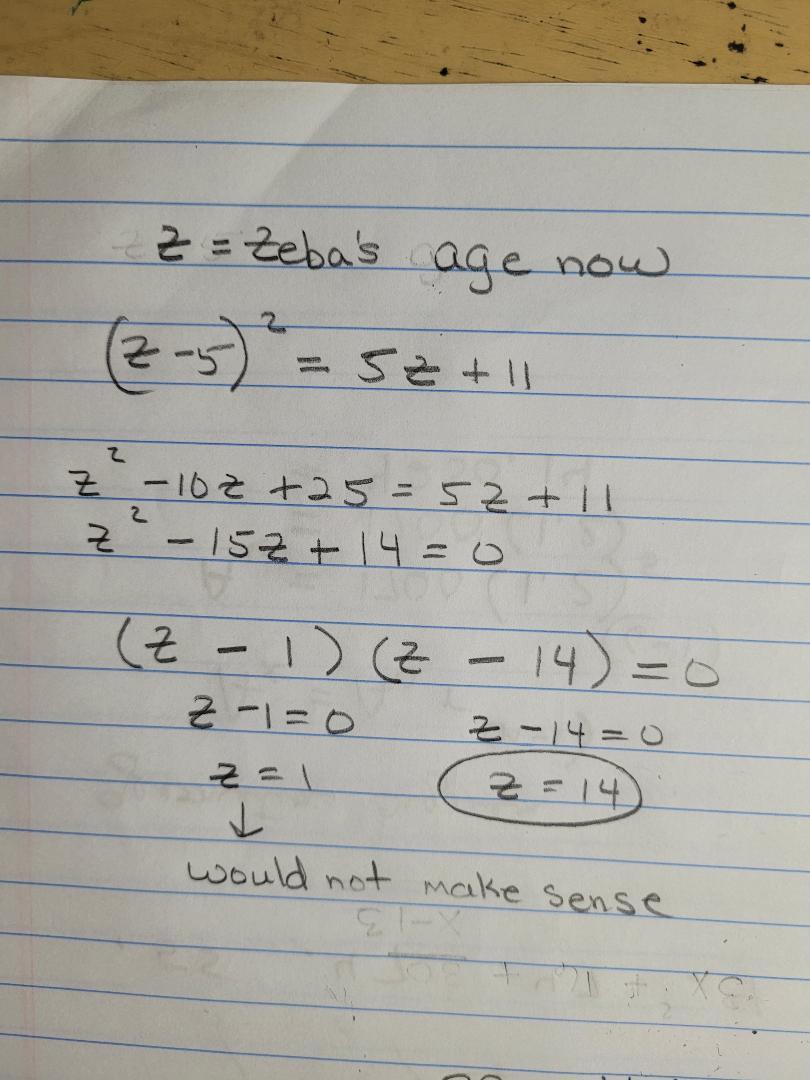 z = Zeba's age now
(z - 5)² = 5z + 11
z² - 10z + 25 = 5z + 11
z² - 15z + 14 = 0
(z - 1)(z - 14) = 0
z - 1 = 0 z - 14 = 0
z = 1 z = 14
↓
would not make sense